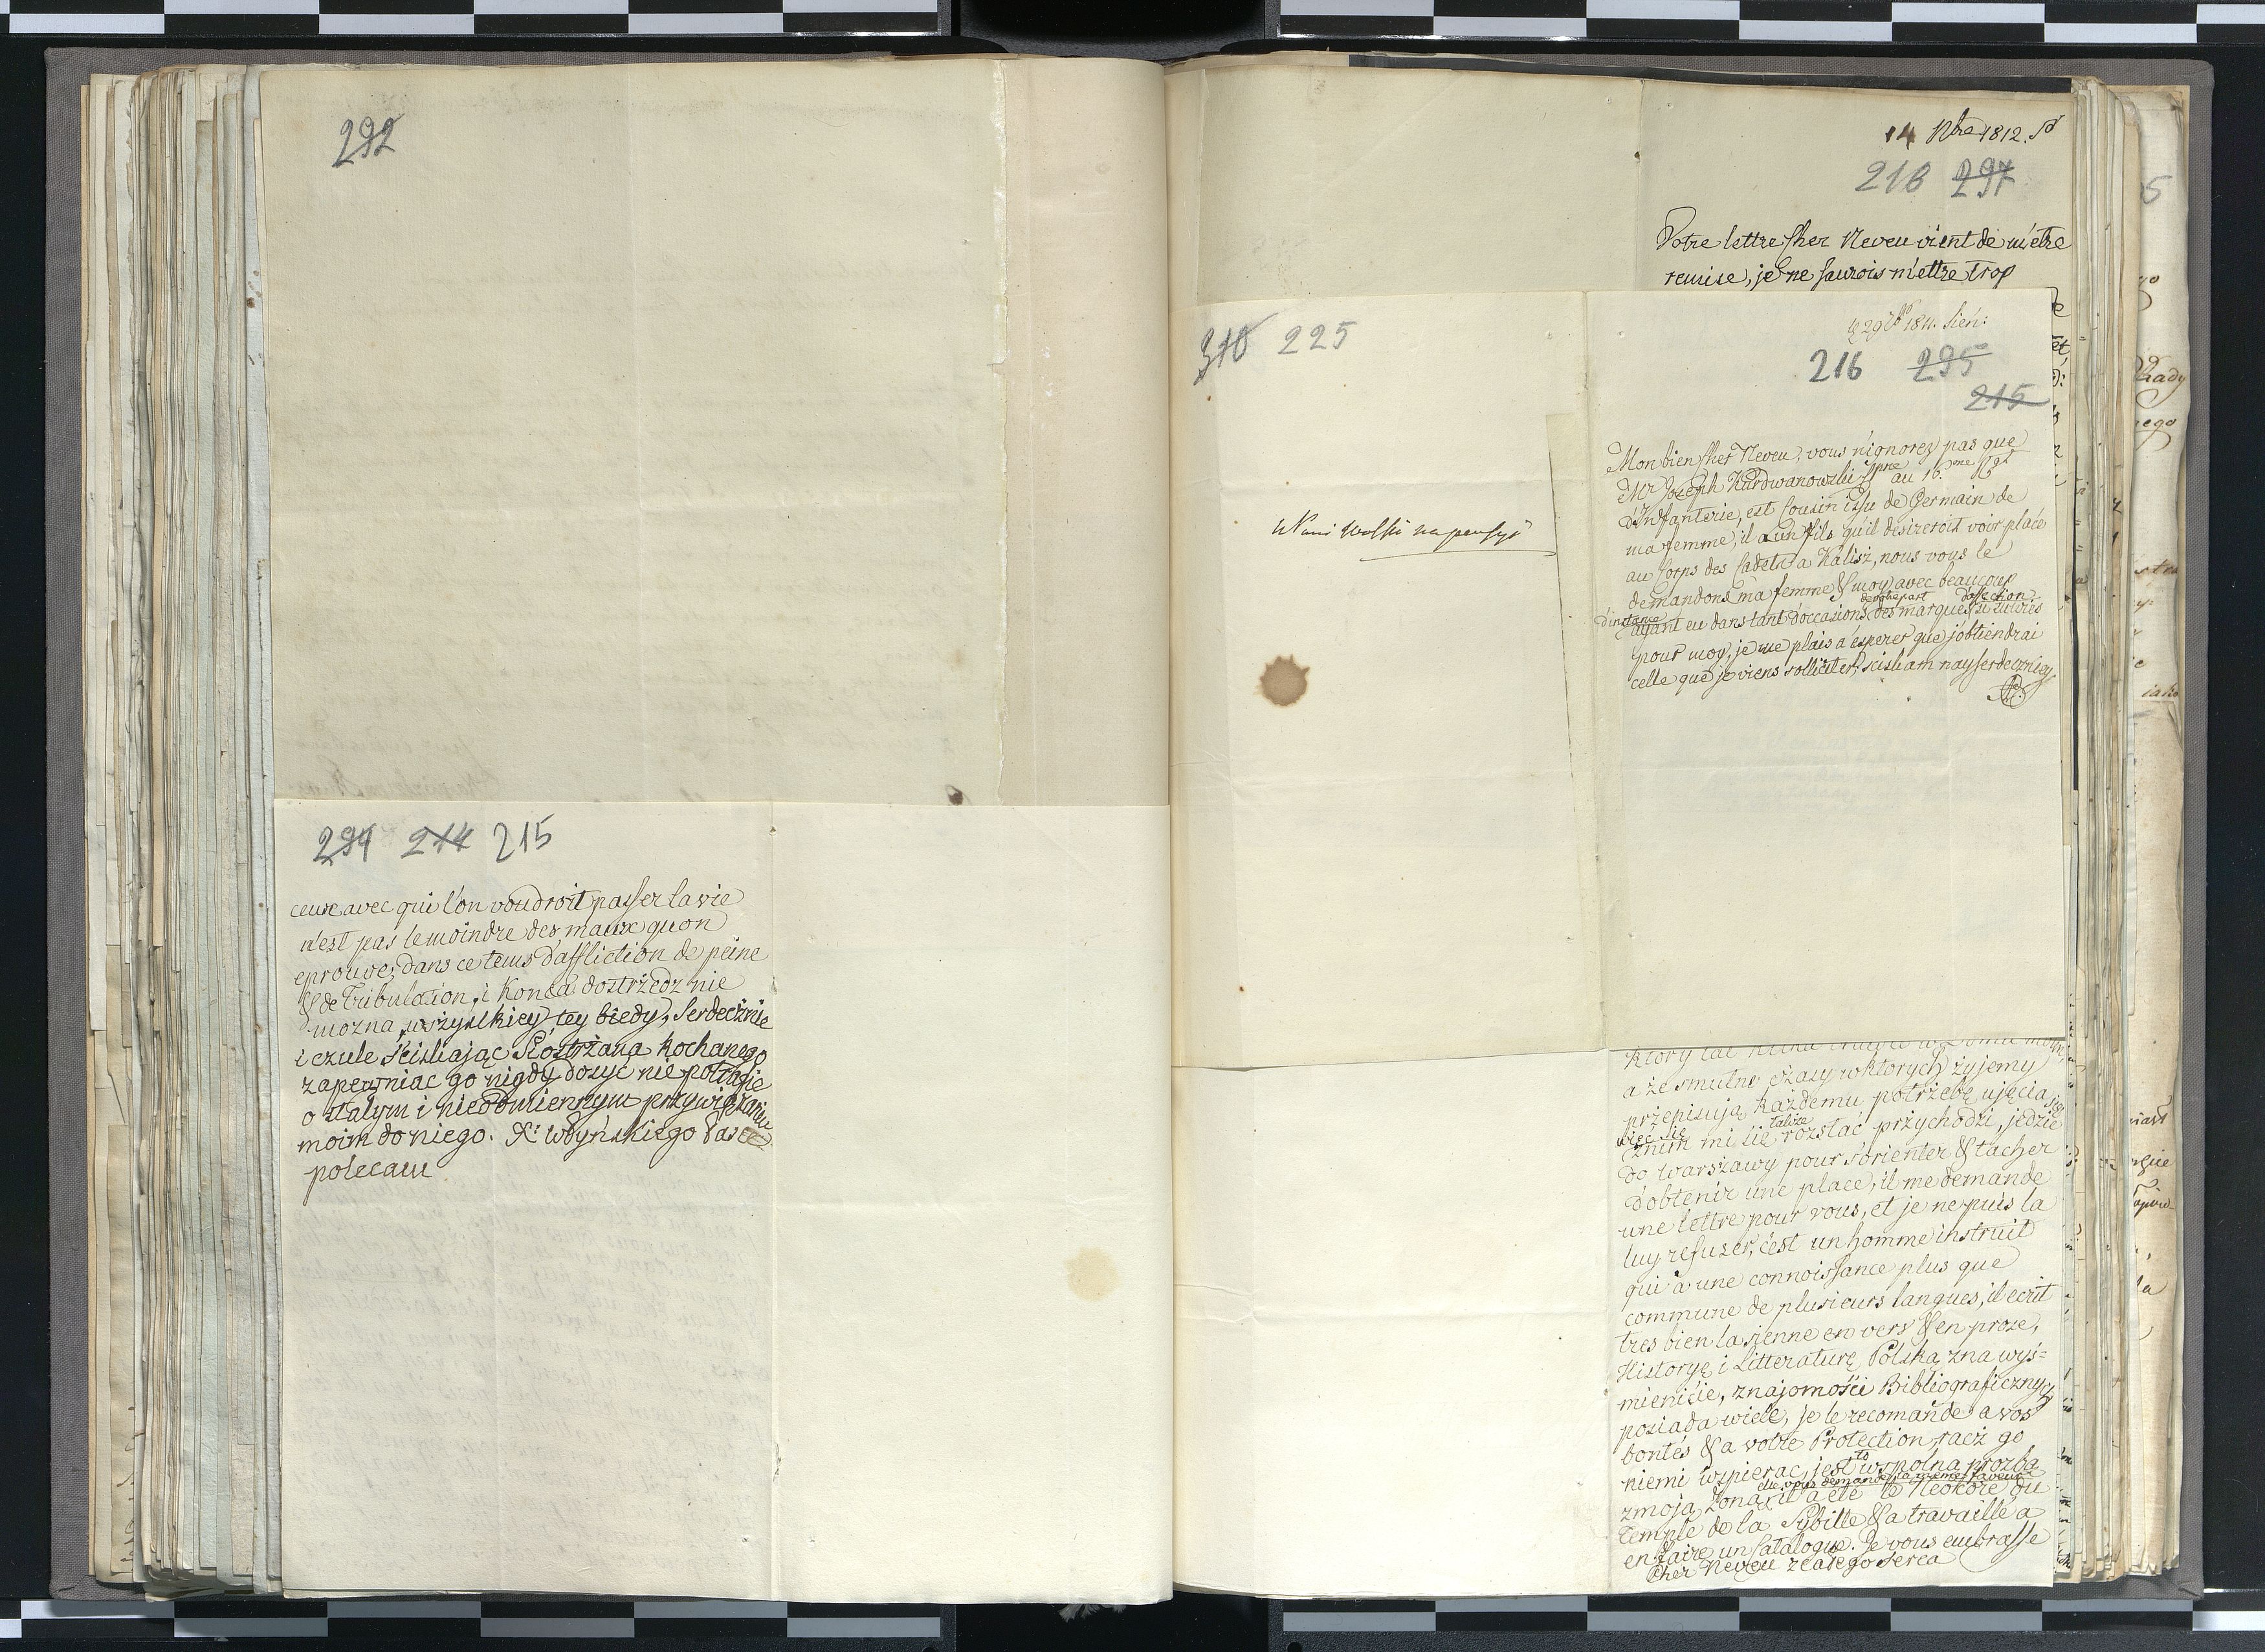 292
294 214 215
ceux avec qui l'on voudroit passer la vie
n'est pas le moindre des maux qu'on
eprouve, dans ce tems d'affliction de peine
& de Tribulation, i Końca dostrzedz nie
można wszystkiey tey biedy, Serdecznie
i czule sciskając Siostrzana kochanego
zapewniac go nigdy dosyć nie potrafie
o stałym i nieodmiennym przywiązaniu
moim do niego. X: Wdyńskiego
polecam
14 Xbre 1812.
216 297
Votre lettre Cher Neveu vient de m'etre
remise, je ne saurois m'ettre trop
310 225
na pensyi
29 1811. Sien:
216 295
215
Mon bien cher Neveu, vous n'ignorez pas que
Mr Joseph Kurdwanowski au 16.me
d'Infanterie, est Cousin issu de Germain de
ma femme, il a un fils qu'il desireroit voir placé
au Corps des Cadets a Kalisz, nous vous le
demandons ma femme & moy avec beaucoup
d'instance ayant eu dans tant d'occasions de votre part des marques d'affection si suivies
pour moy, je me plais a esperer que j'obtiendrai
celle que je viens solliciter, sciskam nayserdeczniey
AC.
który lat kilka w Domu
a że smutne czasy w ktorych żyjemy
przepisują każdemu potrzebę ujęcia się
więc się z nim mi się także rozstać przychodzi, jedzie
do Warszawy pour s'orienter & tacher
d'obtenir une place, il me demande
une lettre pour vous, et je ne puis la
luy refuser, c'est un homme instruit
qui a une connoissance plus que
commune de plusieurs langues, il ecrit
tres bien la sienne en vers & en prose,
Historyę i Litteraturę Polską zna wyś=
mienicie, znajomości Bibliograficznych
posiada wiele, je le recomande a vos
bontés & a votre Protection, racz go
niemi wspierac, jest to wspolna prozba
z moją żoną, elle vous demande la meme faveur il a eté le Neokore du
Temple de la Sybille & a travaillé a
en faire un Catalogue. Je vous embrasse
Cher Neveu z całego serca